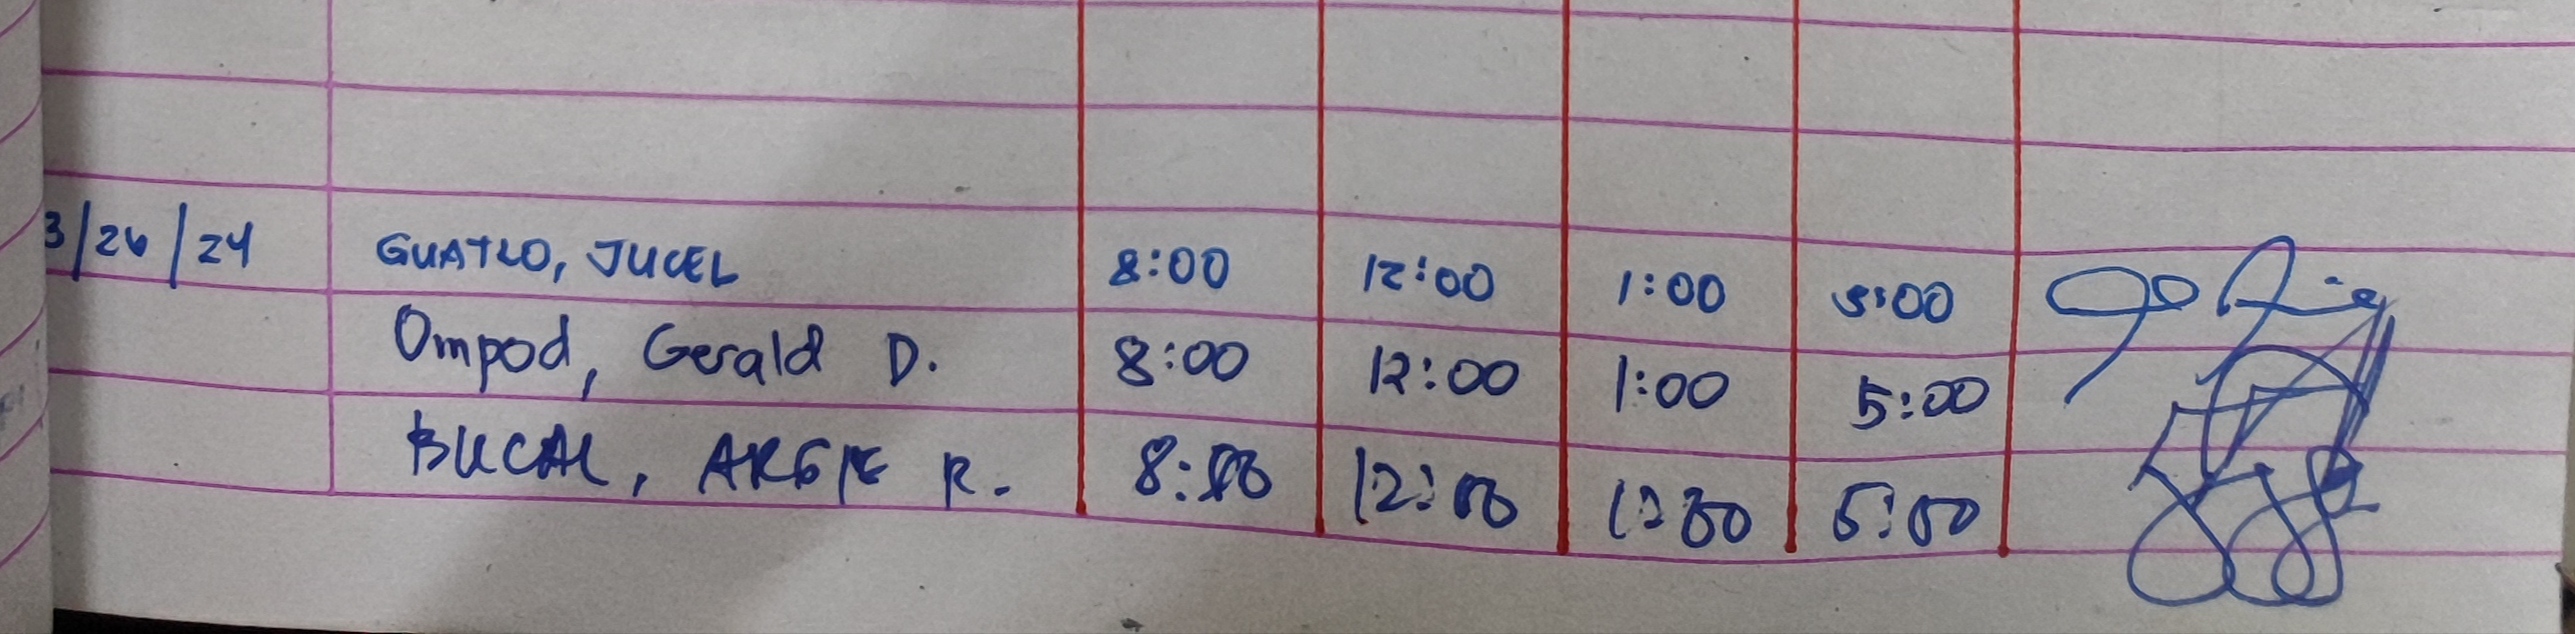 3/26/24 GUATLO, JUCEL 8:00 12:00 1:00 5:00
Ompod, Gerald D. 8:00 12:00 1:00 5:00
BUCAL, ARGIE R. 8:00 12:00 1:00 5:00